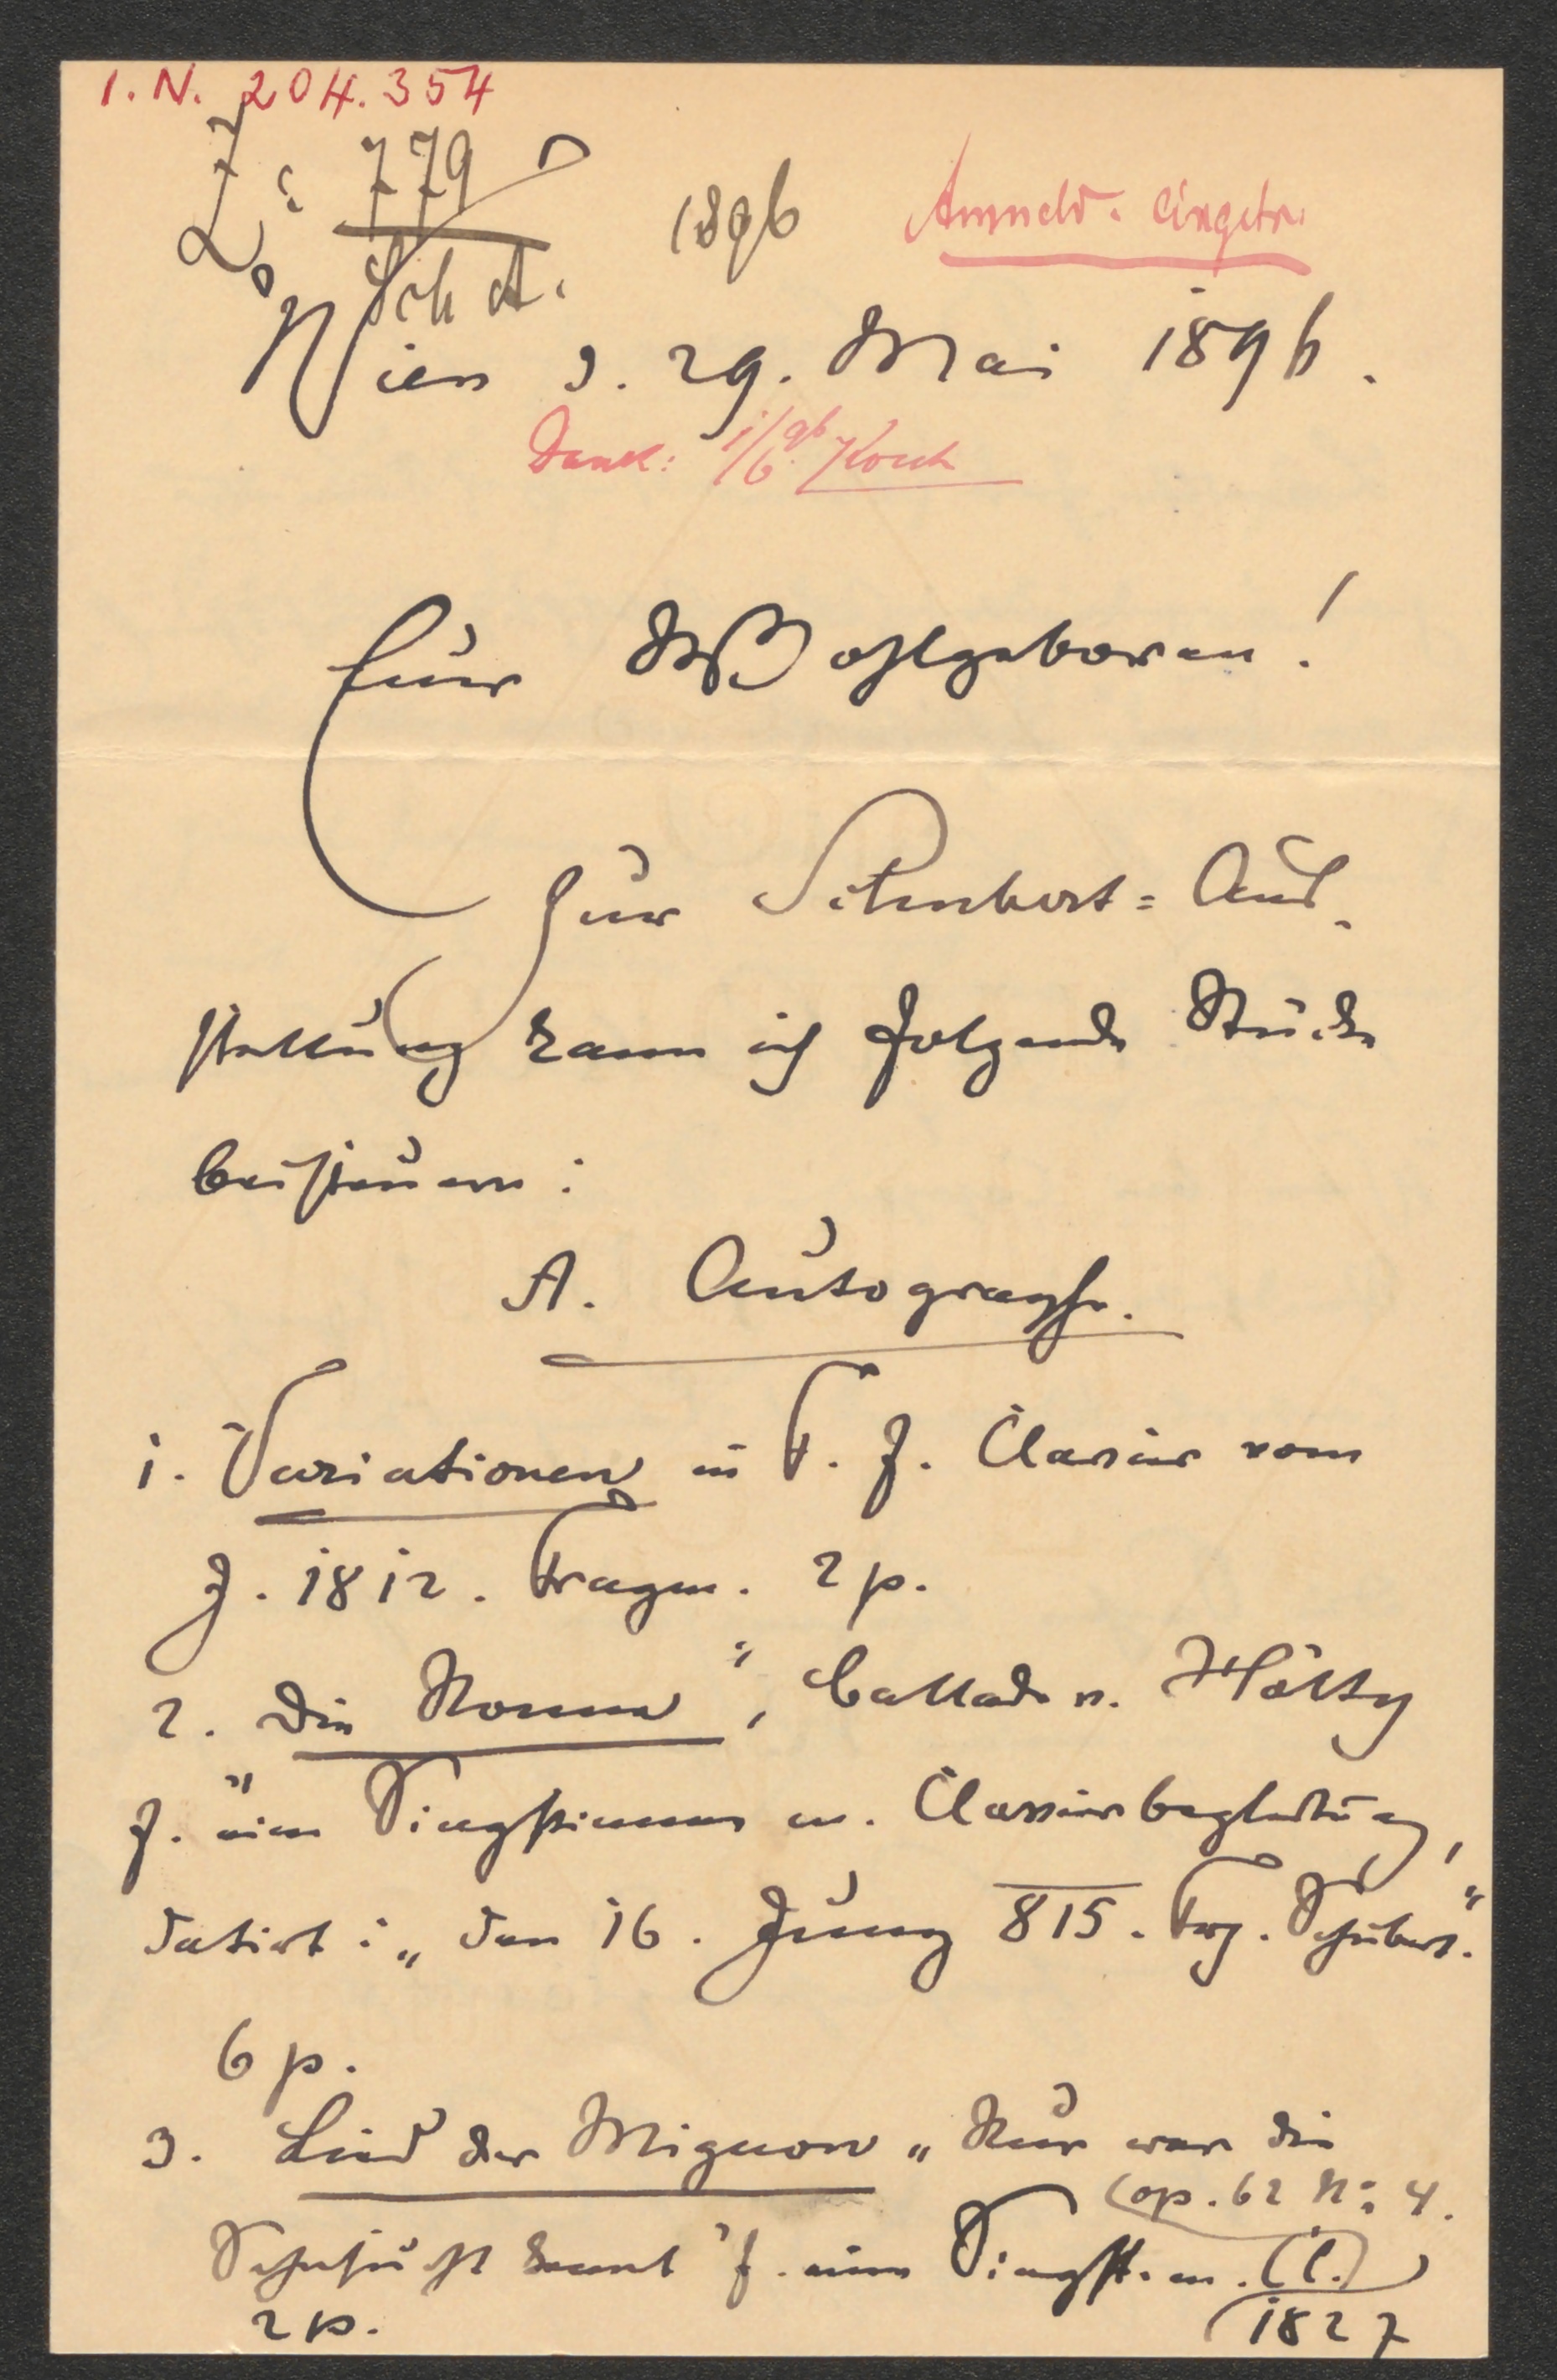 I. N. 204.354
Z: 779
Sch A.
1896
Anmeld. eingetr.
Wien d. 29. Mai 1896.
Dank: 1/6 96 Koch
Euer Wohlgeboren!
Zur Schubert=Aus-
stellung kann ich folgende Stücke
beisteuern:
A. Autographe.
1. Variationen in F. f. Clavier vom
J. 1812. Fragm. 2 p.
2. Die Nonne", Ballade v. Hölty
f. eine Singstimme m. Clavierbegleitung,
datirt: „den 16. Juny 815. Frz. Schubert."
6 p.
3. Lied der Mignon „Nur wer die
(op. 62 No: 4.
Sehnsucht kennt" f. eine Singst. m. Cl.)
2 p.
1827